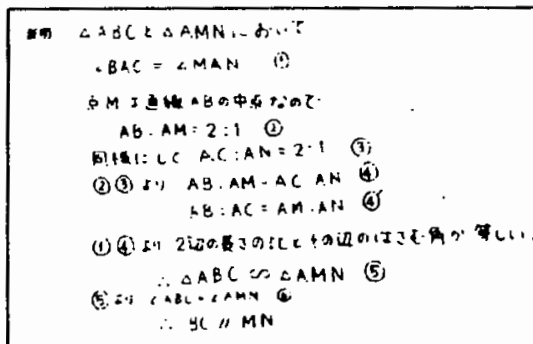 証明 △ABCと△AMNにおいて
∠BAC = ∠MAN ①
点Mは直線ABの中点なので
AB:AM = 2:1 ②
同様にして AC:AN = 2:1 ③
②③より AB:AM = AC:AN ④
AB:AC = AM:AN ④'
①④より 2辺の長さの比とその辺のはさむ角が等しい。
∴ △ABC ∽ △AMN ⑤
⑤より ∠ABC = ∠AMN ⑥
∴ BC // MN